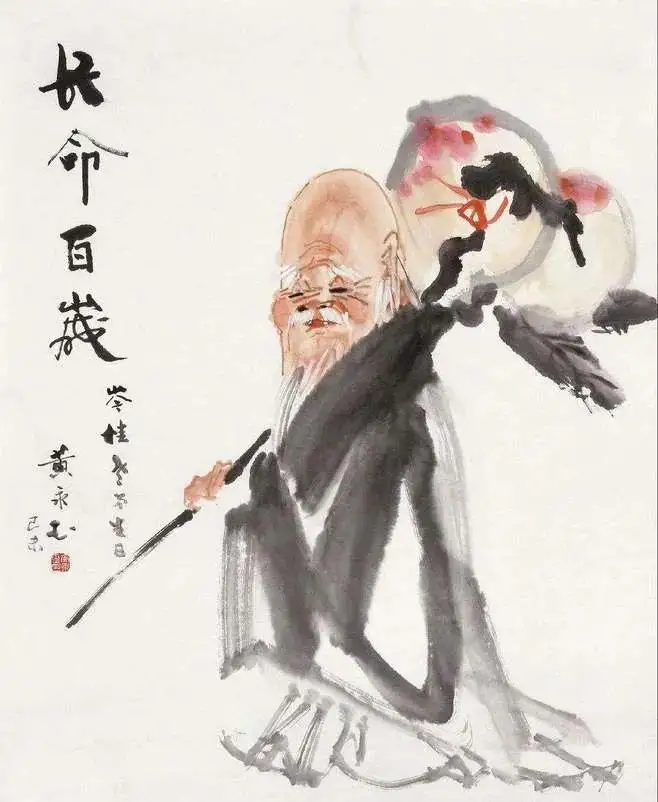 长命百歲
岑桂老 生日
黄永玉
己未